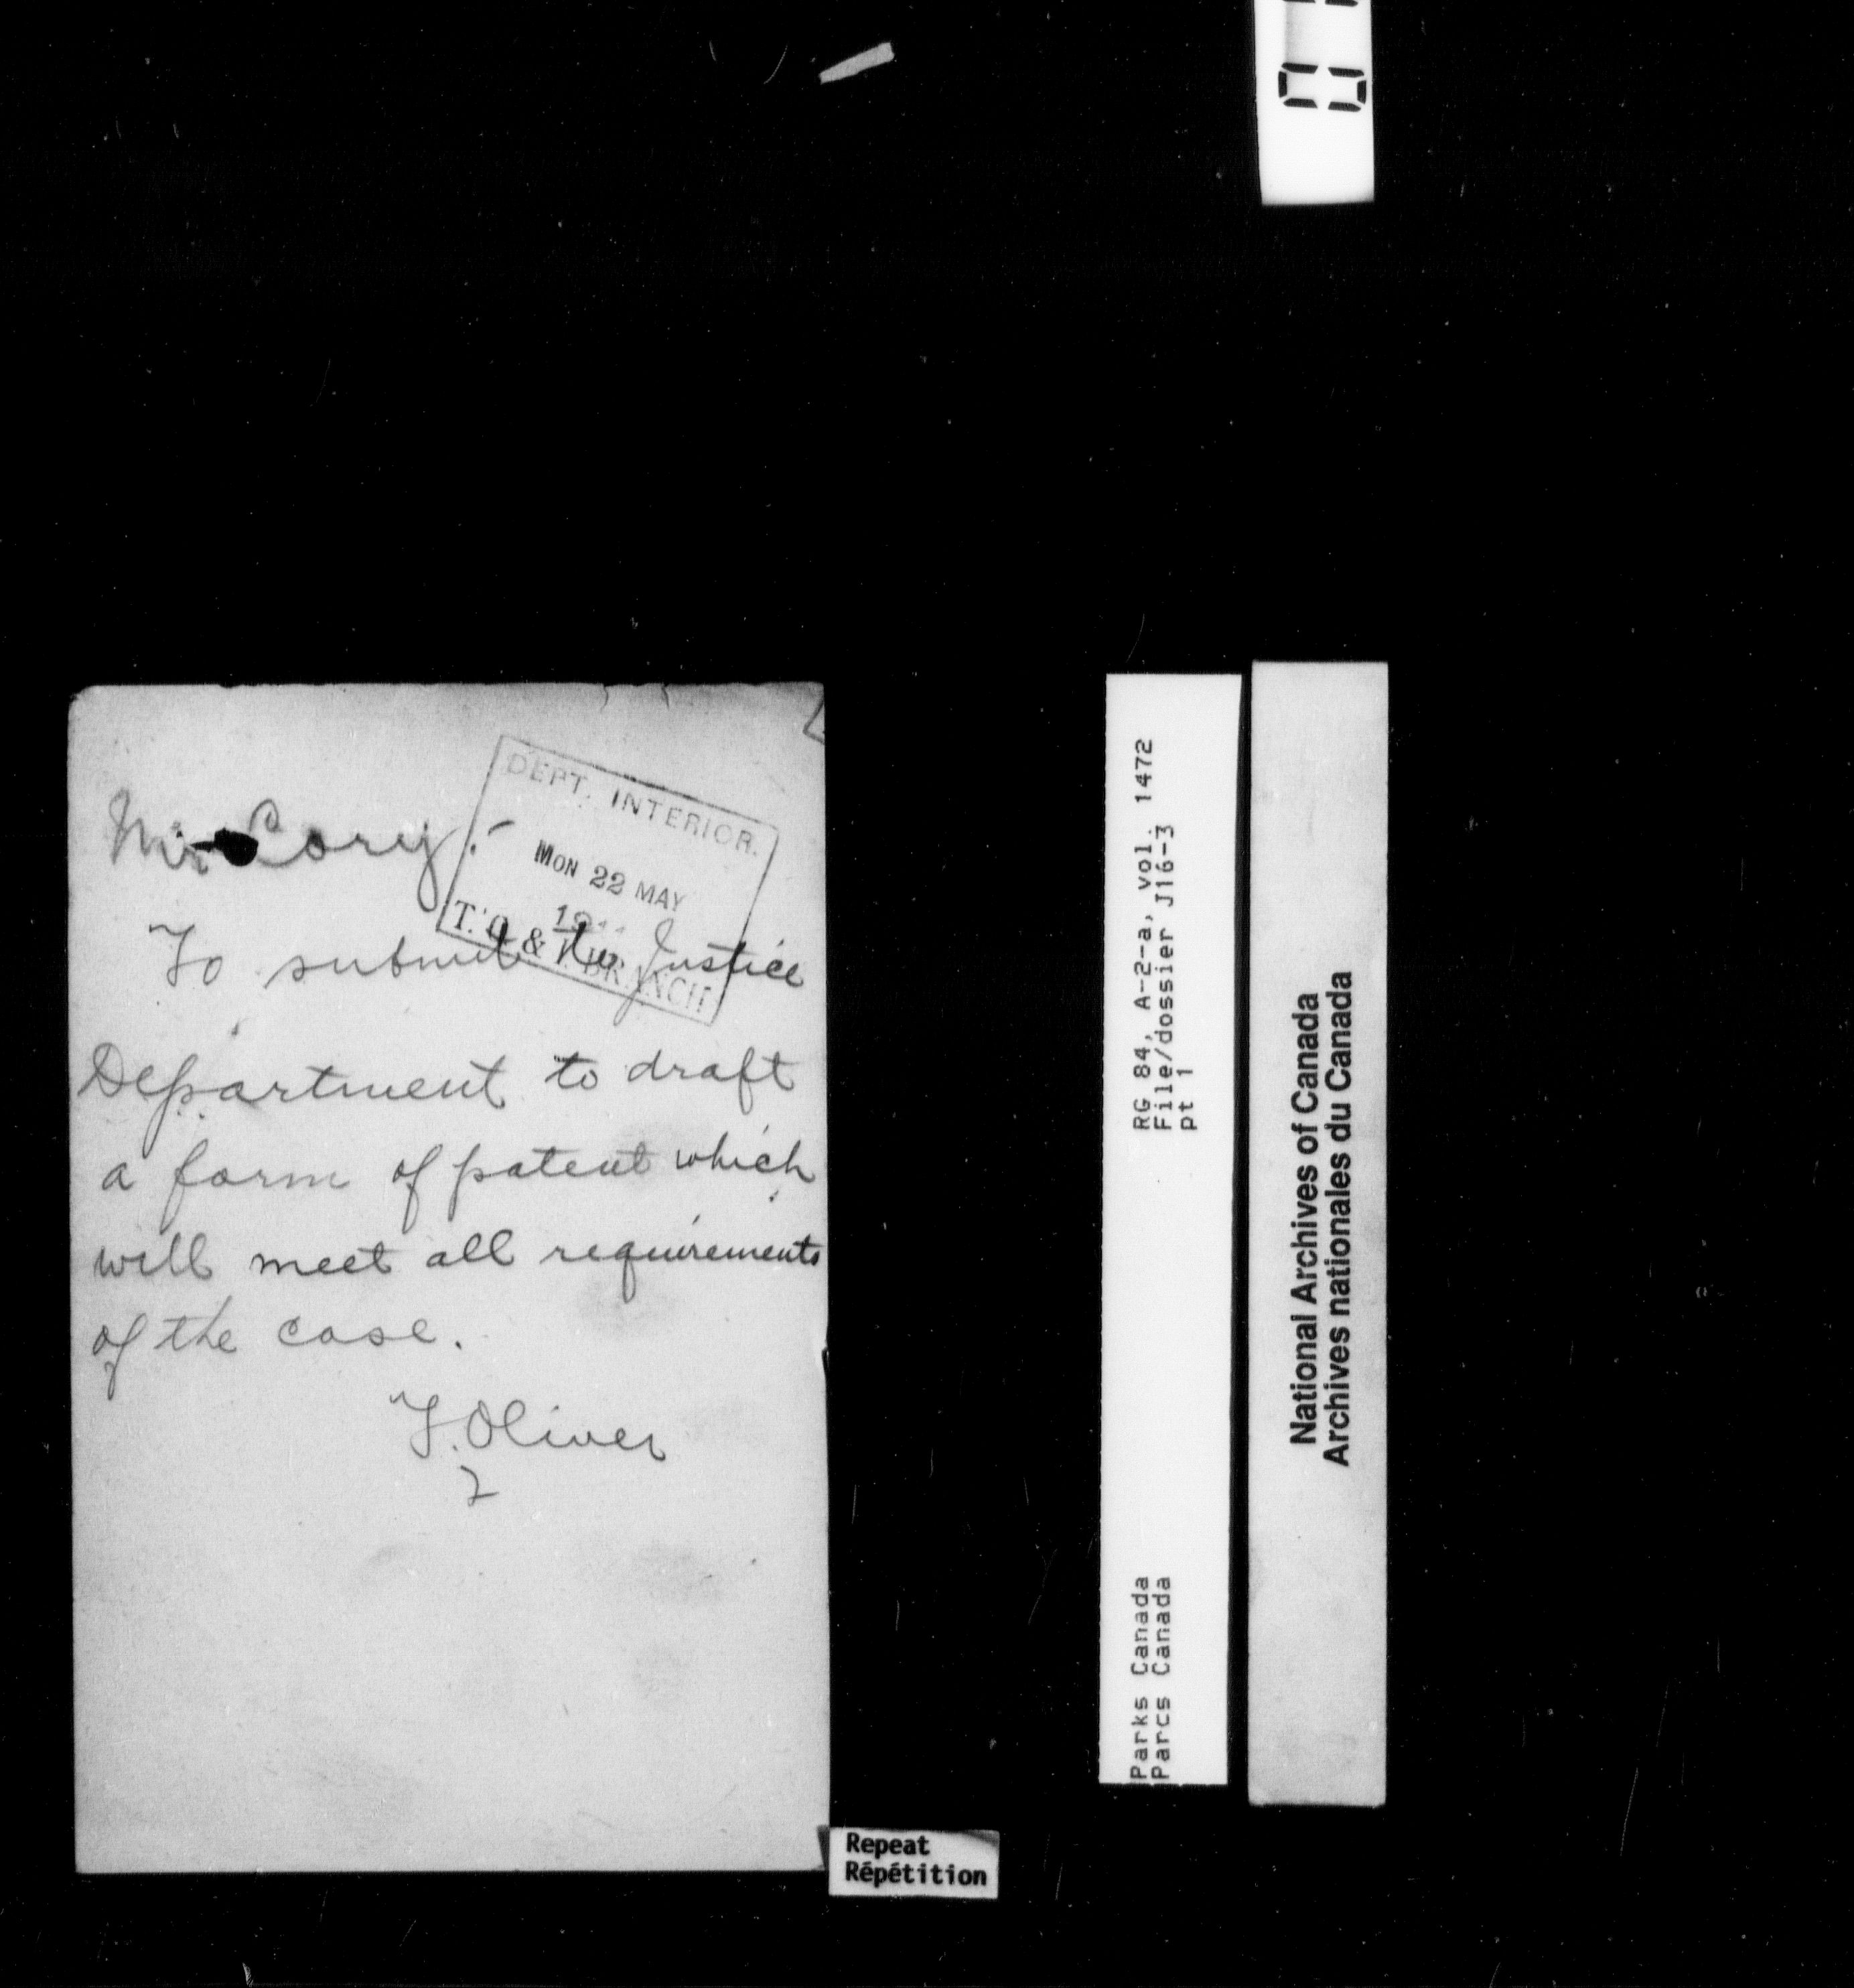 Mr Cory:
DEPT. INTERIOR.
MON 22 MAY
T. & BRANCH
To submit to Justice
Department to draft
a form of patent which
will meet all requirements
of the case.
F. Oliver
2
RG 84, A-2-a, vol. 1472
File/dossier J16-3
pt 1
Parks Canada
Parcs Canada
National Archives of Canada
Archives nationales du Canada
Repeat
Répétition